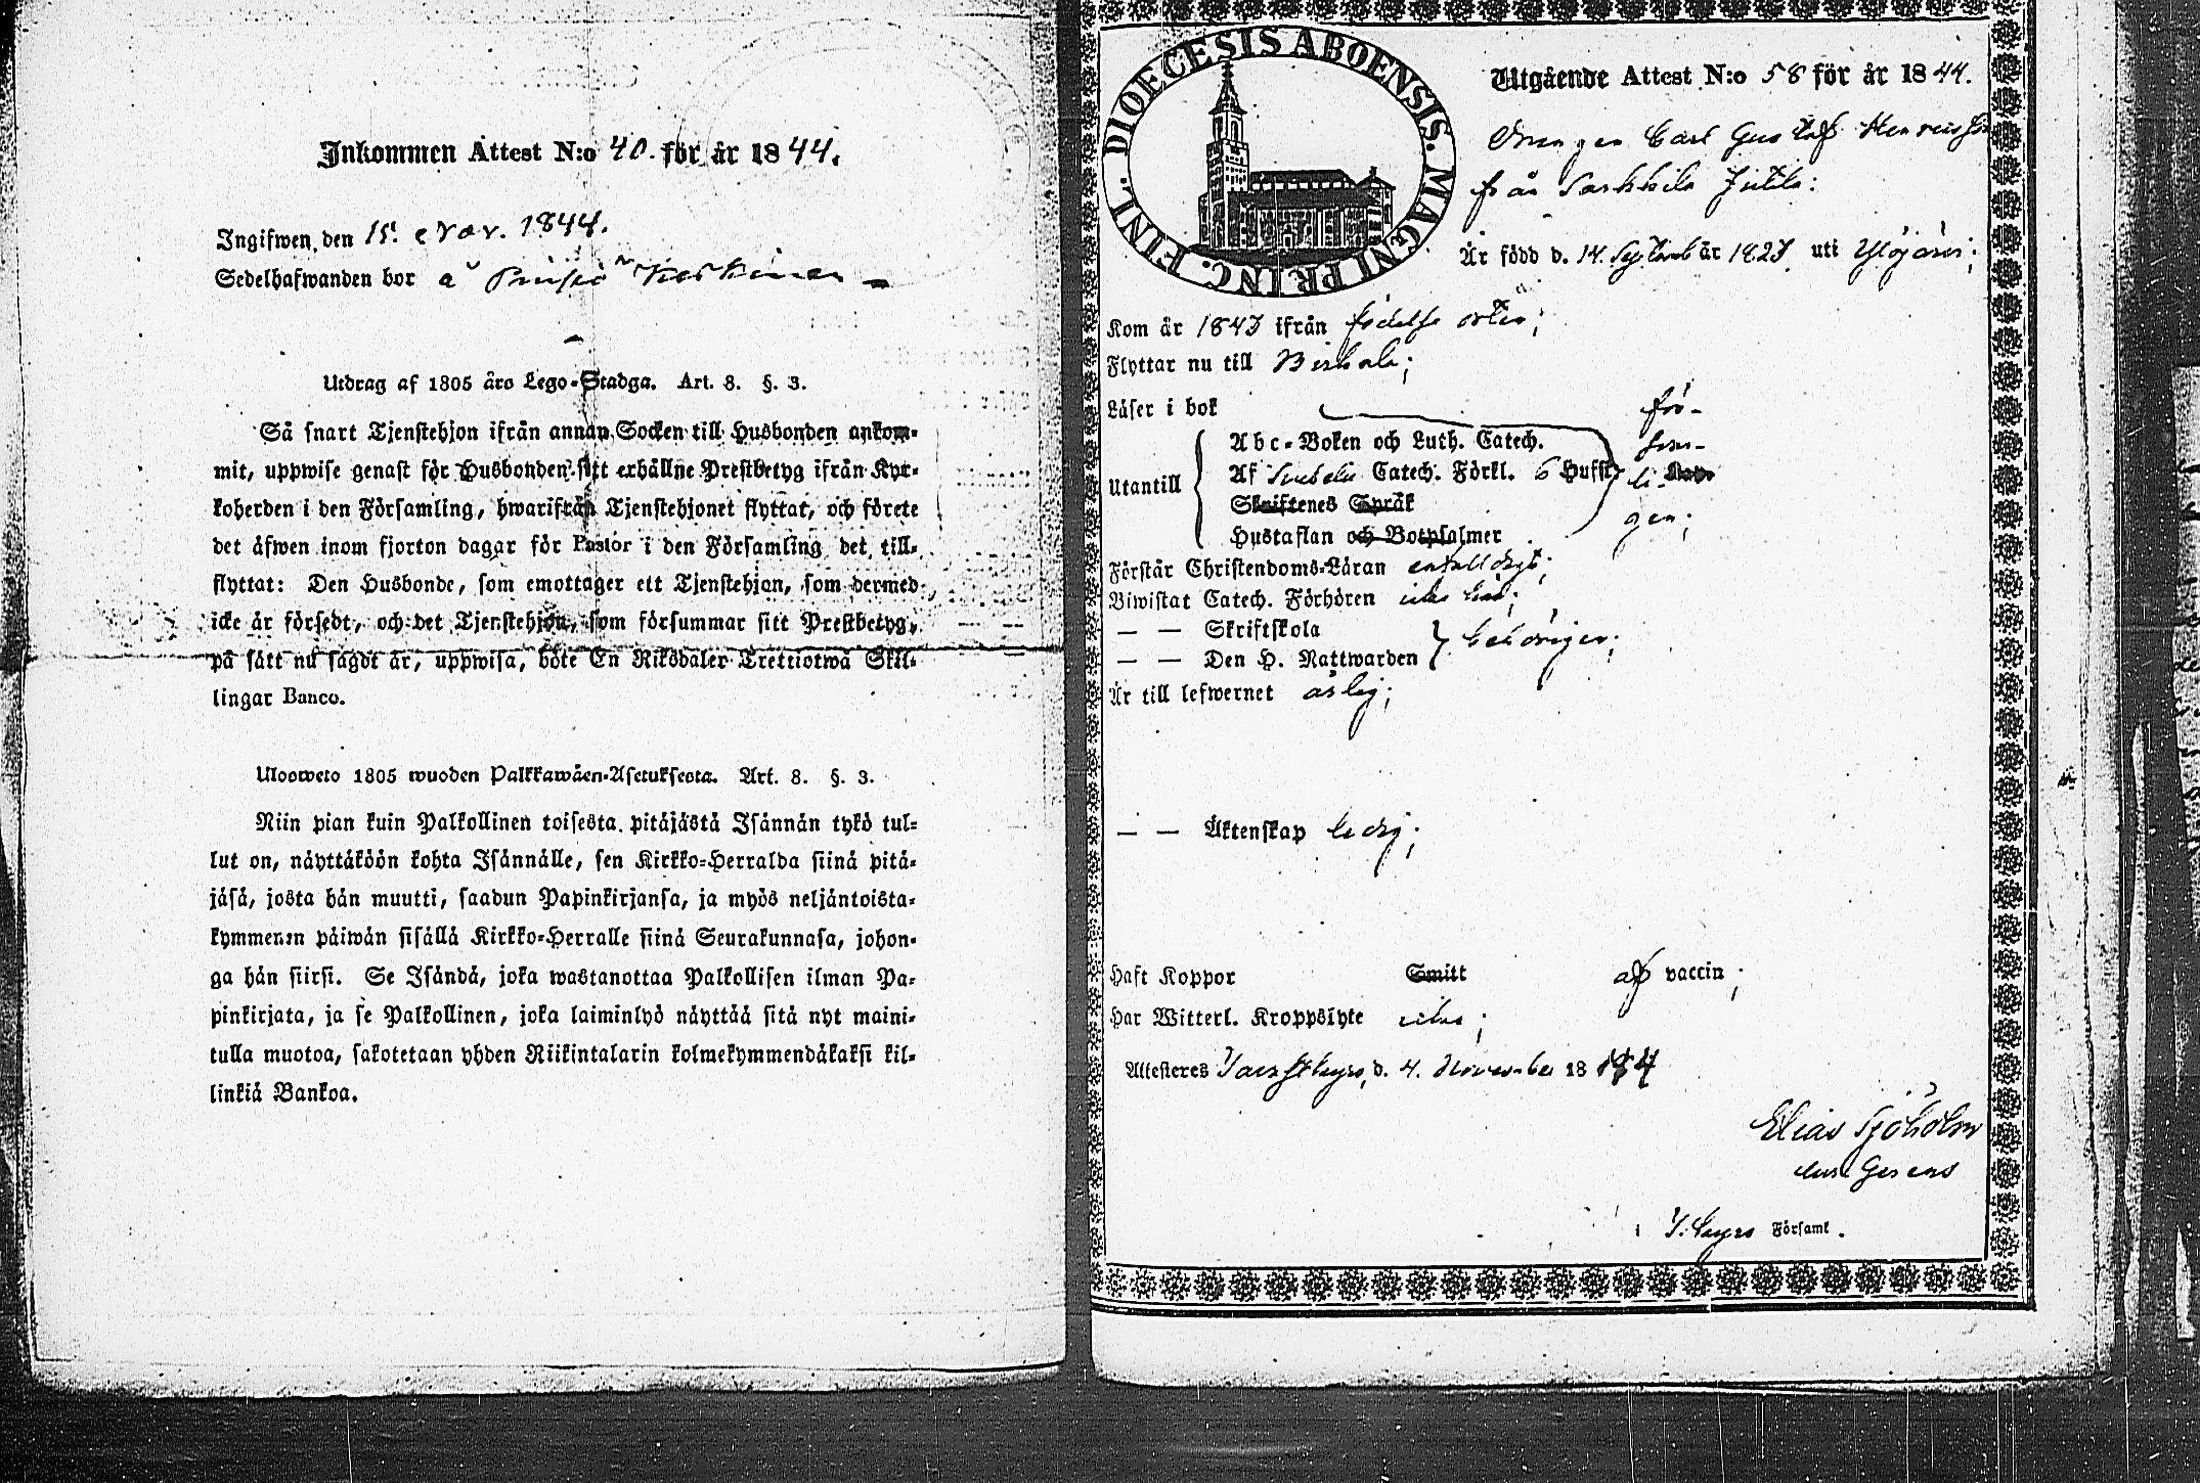 Inkommen Attest N:o 40. för år 1844.
Ingifwen den 15. Nov. 1844.
Sedelhafwanden bor å
Utdrag af 1805 års Lego-Stadga. Art. 8. §. 3.
Så snart Tjenstehjon ifrån annan Socken till Husbonden ankom-
mit, uppwise genast för Husbonden sitt erhållne Prestbetyg ifrån Kyr-
koherden i den Församling, hwarifrån Tjenstehjonet flyttat, och förete
det äfwen inom fjorton dagar för Pastor i den Församling det till-
flyttat: Den Husbonde, som emottager ett Tjenstehjon, som dermed
icke är försedt, och det Tjenstehjon, som försummar sitt Prestbetyg,
på sätt nu sagdt är, uppwisa, böte En Riksdaler Trettiotwå Skil-
lingar Banco.
Ulosweto 1805 wuoden Palkkawäen-Asetuksesta. Art. 8. §. 3.
Niin pian kuin Palkollinen toisesta pitäjästä Isännän tykö tul-
lut on, näyttäköön kohta Isännälle, sen Kirkko-Herralda siinä pitä-
jäsä, josta hän muutti, saadun Papinkirjansa, ja myös neljäntoista-
kymmenen päiwän sisällä Kirkko-Herralle siinä Seurakunnasa, johon-
ga hän siirsi. Se Isändä, joka wastanottaa Palkollisen ilman Pa-
pinkirjata, ja se Palkollinen, joka laiminlyö näyttää sitä nyt maini-
tulla muotoa, sakotetaan yhden Riikintalarin kolmekymmendäkaksi kil-
linkiä Bankoa.
DIOECESIS ABOENSIS. MAGNI PRINC. FINL.
Utgående Attest N:o 58 för år 1844.
Drängen Carl Gustaf Henricsson
från Sarkkila Juttla:
Är född d. 14. Septemb år 1823 uti Ylöjärvi;
Kom år 1843 ifrån födelse orten;
Flyttar nu till Birkala;
Läser i bok för-
Abc-Boken och Luth. Catech. sam-
Utantill Af Svebelii Catech. Förkl. 6 Hufst. li-
Skriftenes Språk gen;
Hustaflan och Botpsalmer
Förstår Christendoms-Läran enfalldigt;
Biwistat Catech. Förhören
— — Skriftskola
— — Den H. Nattwarden behörigen;
Är till lefwernet ärlig;
— — Äktenskap ledig;
Haft Koppor Smitt af vaccin;
Har Witterl. Kroppslyte icke;
Attesteres Tavastkyro, d. 4. November 1844
Elias Sjöholm
Gerens
i T. Kyro Församl.